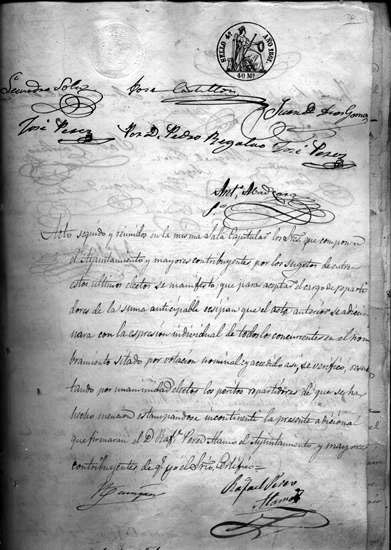 SELLO 4º AÑO 1861
40 Ms
Secundino Solis Jose Castillon
Juan D. Gomez
José Perez Por D. Pedro Regalao José Perez
Anto
Acto seguido y reunidos en la misma Sala Capitular los Sres que componen
el Ayuntamiento y mayores contribuyentes por los sugetos de entre
estos ultimos electos se manifestó que para aceptar el cargo de
dores de la suma anticipable exijian que el acta anterior se adicio
nara con la espresion individual de todos los concurrentes en el nom
bramiento sitado por votacion nominal y accedido asi se verificó, resul
tando por unanimidad electos los peritos repartidores de que se ha
hecho mencion estampandose incontinente la presente adiciona
que firmaran el D. Rafl Perez Alamo el Ayuntamiento y mayores
contribuyentes de q. yo el Srio Certifico=
Rafael Perez
Alamo